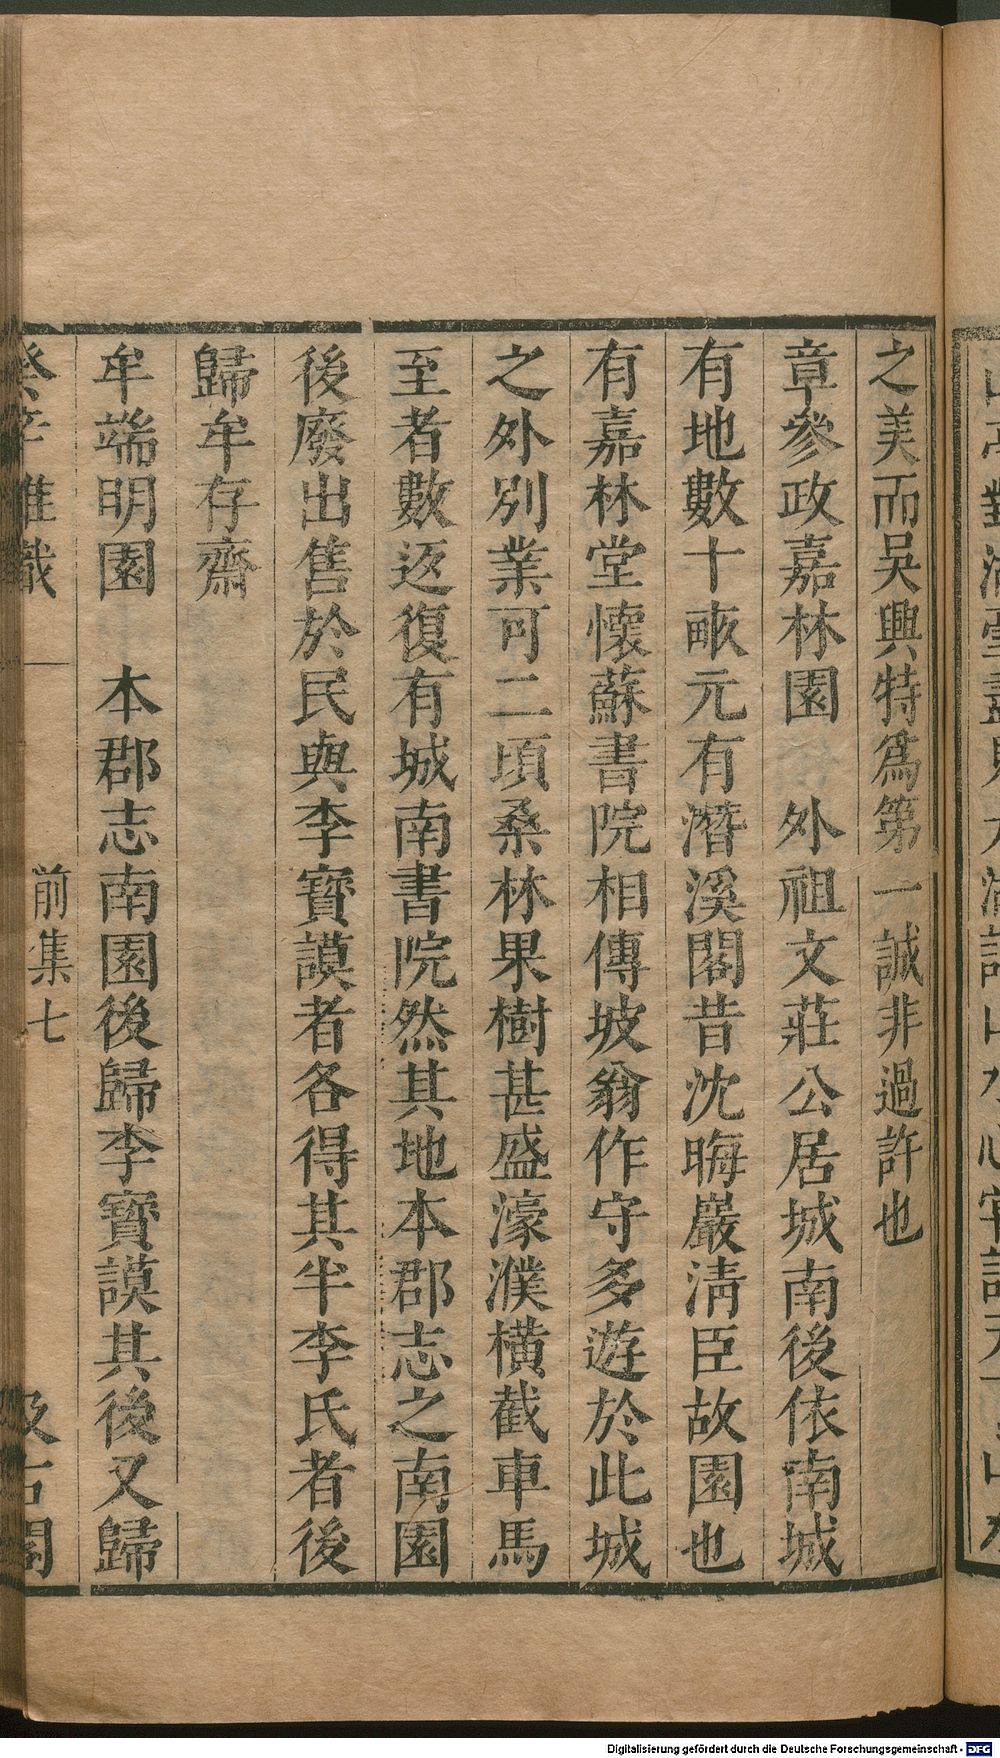 之美而吳興特爲第一誠非過許也
章參政嘉林園　外祖文莊公居城南後依南城
有地數十畝元有潛溪閣昔沈晦巖淸臣故園也
有嘉林堂懷蘇書院相傳坡翁作守多遊於此城
之外別業可二頃桑林果樹甚盛濠濮橫截車馬
至者數返復有城南書院然其地本郡志之南園
後廢出售於民與李寶謨者各得其半李氏者後
歸牟存齋
牟端明園　本郡志南園後歸李寶謨其後又歸
前集七
Digitalisierung gefördert durch die Deutsche Forschungsgemeinschaft - DFG